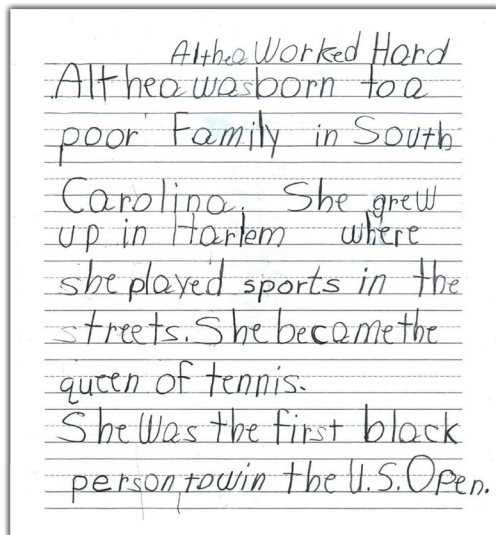 Althea Worked Hard
Althea was born to a
poor Family in South
Carolina. She grew
up in Harlem where
she played sports in the
streets. She became the
queen of tennis.
She Was the first black
person to win the U.S. Open.